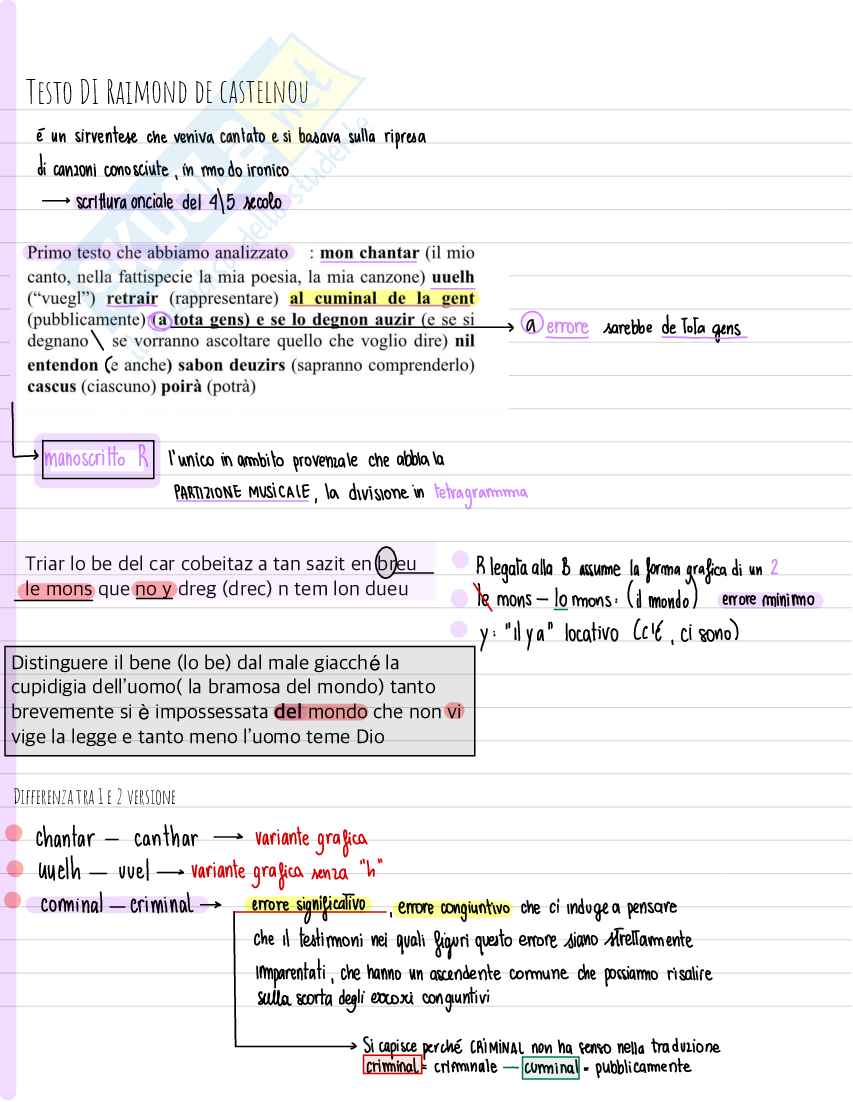 TESTO DI RAIMOND DE CASTELNOU
é un sirventese che veniva cantato e si basava sulla ripresa
di canzoni conosciute, in modo ironico
→ scrittura onciale del 4\5 secolo
Primo testo che abbiamo analizzato : mon chantar (il mio
canto, nella fattispecie la mia poesia, la mia canzone) uuelh
(“vuegl”) retrair (rappresentare) al cuminal de la gent
(pubblicamente) (a tota gens) e se lo degnon auzir (e se si
degnano \ se vorranno ascoltare quello che voglio dire) nil
entendon (e anche) sabon deuzirs (sapranno comprenderlo)
cascus (ciascuno) poirà (potrà)
a errore sarebbe de Tota gens
manoscritto R l'unico in ambito provenzale che abbia la
PARTIZIONE MUSICALE, la divisione in tetragramma
Triar lo be del car cobeitaz a tan sazit en breu
le mons que no y dreg (drec) n tem lon dueu
R legata alla B assume la forma grafica di un 2
le mons – lo mons: (il mondo) errore minimo
y: "il y a" locativo (c'é, ci sono)
Distinguere il bene (lo be) dal male giacché la
cupidigia dell'uomo( la bramosa del mondo) tanto
brevemente si è impossessata del mondo che non vi
vige la legge e tanto meno l'uomo teme Dio
DIFFERENZA TRA 1 E 2 VERSIONE
chantar – canthar → variante grafica
uuelh – vuel → variante grafica senza "h"
cominal – criminal → errore significativo, errore congiuntivo che ci induge a pensare
che il testimoni nei quali figuri questo errore siano strettamente
imparentati, che hanno un ascendente comune che possiamo risalire
sulla scorta degli errori congiuntivi
Si capisce perché CRIMINAL non ha senso nella traduzione
criminal = criminale – cuminal = pubblicamente